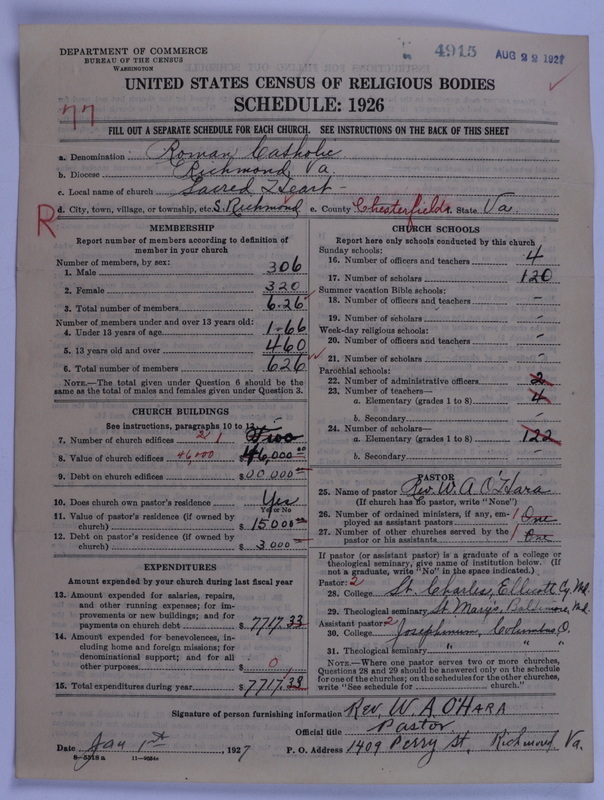 4915 AUG 22 1927
DEPARTMENT OF COMMERCE
BUREAU OF THE CENSUS
WASHINGTON
UNITED STATES CENSUS OF RELIGIOUS BODIES
SCHEDULE: 1926
77
FILL OUT A SEPARATE SCHEDULE FOR EACH CHURCH. SEE INSTRUCTIONS ON THE BACK OF THIS SHEET
a. Denomination Roman Catholic
b. Diocese Richmond, Va.
c. Local name of church Sacred Heart
R
d. City, town, village, or township, etc. S. Richmond e. County Chesterfield State Va.
MEMBERSHIP
Report number of members according to definition of member in your church
Number of members, by sex:
1. Male 306
2. Female 320
3. Total number of members 626
Number of members under and over 13 years old:
4. Under 13 years of age 166
5. 13 years old and over 460
6. Total number of members 626
NOTE.—The total given under Question 6 should be the same as the total of males and females given under Question 3.
CHURCH BUILDINGS
See instructions, paragraphs 10 to 12
7. Number of church edifices 1 Two
8. Value of church edifices 46,000 $ 46,000 00
9. Debt on church edifices $ 00 000
10. Does church own pastor's residence Yes
Yes or No
11. Value of pastor's residence (if owned by church) $ 15000 00
12. Debt on pastor's residence (if owned by church) $ 3000
EXPENDITURES
Amount expended by your church during last fiscal year
13. Amount expended for salaries, repairs, and other running expenses; for improvements or new buildings; and for payments on church debt $ 7717.33
14. Amount expended for benevolences, including home and foreign missions; for denominational support; and for all other purposes $ 0
15. Total expenditures during year $ 7717.33
CHURCH SCHOOLS
Report here only schools conducted by this church
Sunday schools:
16. Number of officers and teachers 4
17. Number of scholars 120
Summer vacation Bible schools:
18. Number of officers and teachers –
19. Number of scholars –
Week-day religious schools:
20. Number of officers and teachers –
21. Number of scholars –
Parochial schools:
22. Number of administrative officers 2
23. Number of teachers—
a. Elementary (grades 1 to 8) 4
b. Secondary –
24. Number of scholars—
a. Elementary (grades 1 to 8) 122
b. Secondary –
PASTOR
25. Name of pastor Rev. W. A. O'Hara
(If church has no pastor, write "None")
26. Number of ordained ministers, if any, employed as assistant pastors 1 One
27. Number of other churches served by the pastor or his assistants 1 One
If pastor (or assistant pastor) is a graduate of a college or theological seminary, give name of institution below. (If not a graduate, write "No" in the space indicated.)
Pastor: 2
28. College St. Charles, Ellicott Cy. Md.
29. Theological seminary St Mary's, Baltimore, Md.
Assistant pastor 2
30. College Josephinum, Columbus, O.
31. Theological seminary " " "
NOTE.—Where one pastor serves two or more churches, Questions 28 and 29 should be answered only on the schedule for one of the churches; on the schedules for the other churches, write "See schedule for church."
Signature of person furnishing information Rev. W. A. O'Hara
Official title Pastor
Date Jan 1st, 1927 P. O. Address 1409 Perry St, Richmond, Va.
8-5518 a 11-9664c